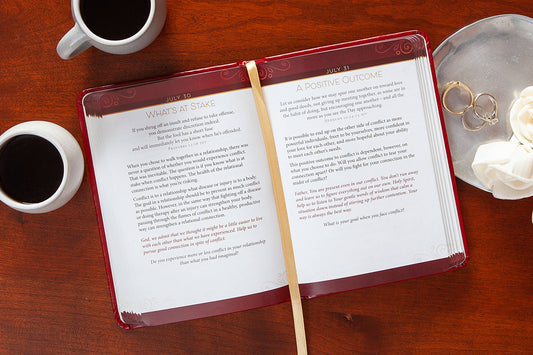 JULY 30
WHAT'S AT STAKE
If you shrug off an insult and refuse to take offense,
you demonstrate discretion indeed.
But the fool has a short fuse
and will immediately let you know when he's offended.
PROVERBS 12:16 TPT
When you chose to walk together in a relationship, there was
never a question of whether you would experience conflict.
That was inevitable. The question is if you know what is at
stake when conflict happens. The health of the relational
connection is what you're risking.
Conflict is to a relationship what disease or injury is to a body.
The goal in a relationship should be to recover as much connection
as possible. However, in the same way that fighting off a disease
or doing therapy after an injury can strengthen your body,
passing through the flames of conflict in a healthy, productive
way can strengthen a relational connection.
God, we admit that we thought it might be a little easier to live
with each other than what we have experienced. Help us to
pursue good connection in spite of conflict.
Do you experience more or less conflict in your relationship
than what you had imagined?
JULY 31
A POSITIVE OUTCOME
Let us consider how we may spur one another on toward love
and good deeds, not giving up meeting together, as some are in
the habit of doing, but encouraging one another—and all the
more as you see the Day approaching.
It is possible to end up on the other side of conflict as more
powerful individuals, freer to be yourselves, more confident in
your love for each other, and more hopeful about your ability
to meet each other's needs.
This positive outcome to conflict is dependent, however, on
your response to it. Will you allow conflict to tear your
connection apart? Or will you fight for your connection in the
midst of conflict?
Father, You are present even in our conflict. You don't run away
and leave us to figure everything out on our own. Holy Spirit,
help us to listen to Your gentle words of wisdom that calm a
situation down instead of stirring up further contention. Your
way is always the best way.
What is your goal when you face conflict?